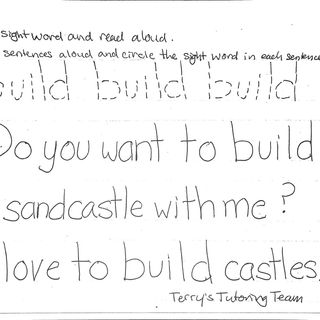 sight word and read aloud.
sentences aloud and circle the sight word in each sentence
build build build
Do you want to build
sandcastle with me?
love to build castles.
Terry's Tutoring Team